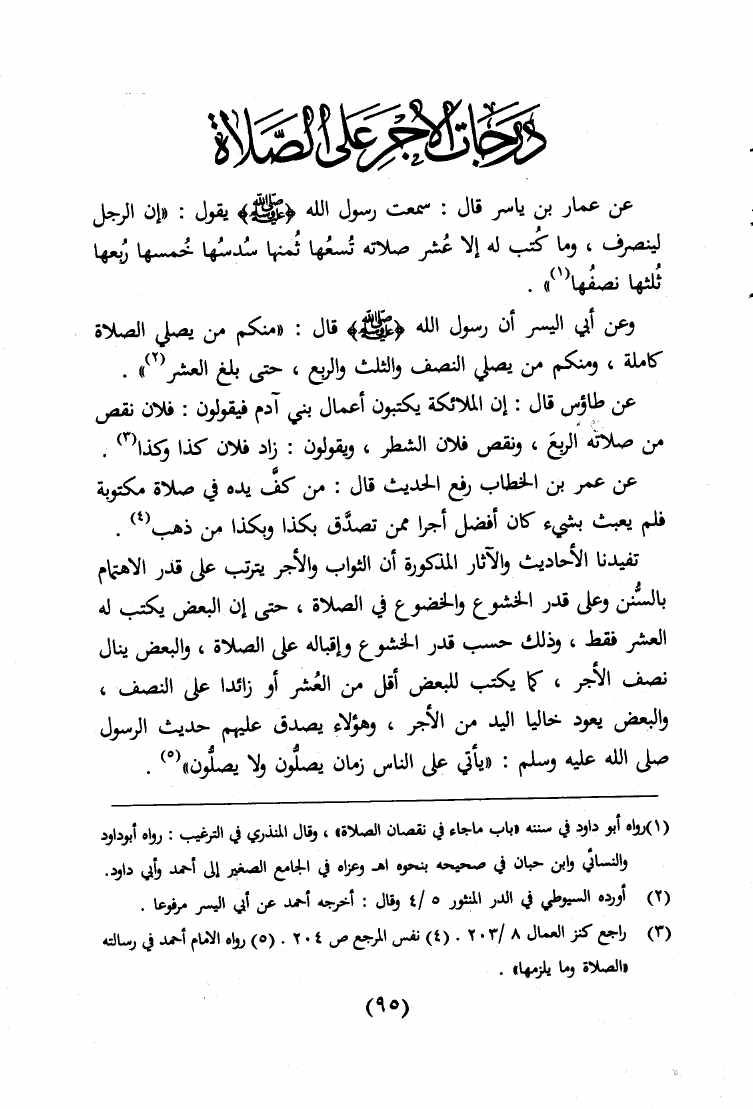 درجات الأجر على الصلاة
عن عمار بن ياسر قال : سمعت رسول الله ﴿ﷺ﴾ يقول : «إن الرجل
لينصرف ، وما كُتب له إلا عُشر صلاته تُسعُها ثُمنها سُدسُها خُمسها رُبعها
ثُلثها نصفُها(١)» .
وعن أبي اليسر أن رسول الله ﴿ﷺ﴾ قال : «منكم من يصلي الصلاة
كاملة ، ومنكم من يصلي النصف والثلث والربع ، حتى بلغ العشر(٢)» .
عن طاؤس قال : إن الملائكة يكتبون أعمال بني آدم فيقولون : فلان نقص
من صلاته الربعَ ، ونقص فلان الشطر ، ويقولون : زاد فلان كذا وكذا(٣) .
عن عمر بن الخطاب رفع الحديث قال : من كفَّ يده في صلاة مكتوبة
فلم يعبث بشيء كان أفضل أجرا ممن تصدَّق بكذا وبكذا من ذهب(٤) .
تفيدنا الأحاديث والآثار المذكورة أن الثواب والأجر يترتب على قدر الاهتمام
بالسُّنن وعلى قدر الخشوع والخضوع في الصلاة ، حتى إن البعض يكتب له
العشر فقط ، وذلك حسب قدر الخشوع وإقباله على الصلاة ، والبعض ينال
نصف الأجر ، كما يكتب للبعض أقل من العُشر أو زائدا على النصف ،
والبعض يعود خاليا اليد من الأجر ، وهؤلاء يصدق عليهم حديث الرسول
صلى الله عليه وسلم : «يأتي على الناس زمان يصلُّون ولا يصلُّون»(٥) .
(١)رواه أبو داود في سننه «باب ماجاء في نقصان الصلاة» ، وقال المنذري في الترغيب : رواه أبوداود
والنسائي وابن حبان في صحيحه بنحوه اهـ وعزاه في الجامع الصغير إلى أحمد وأبي داود.
(٢) أورده السيوطي في الدر المنثور ٥ /٤ وقال : أخرجه أحمد عن أبي اليسر مرفوعا .
(٣) راجع كنز العمال ٨ /٢٠٣ . (٤) نفس المرجع ص ٢٠٤ . (٥) رواه الامام أحمد في رسالته
«الصلاة وما يلزمها» .
(٩٥)